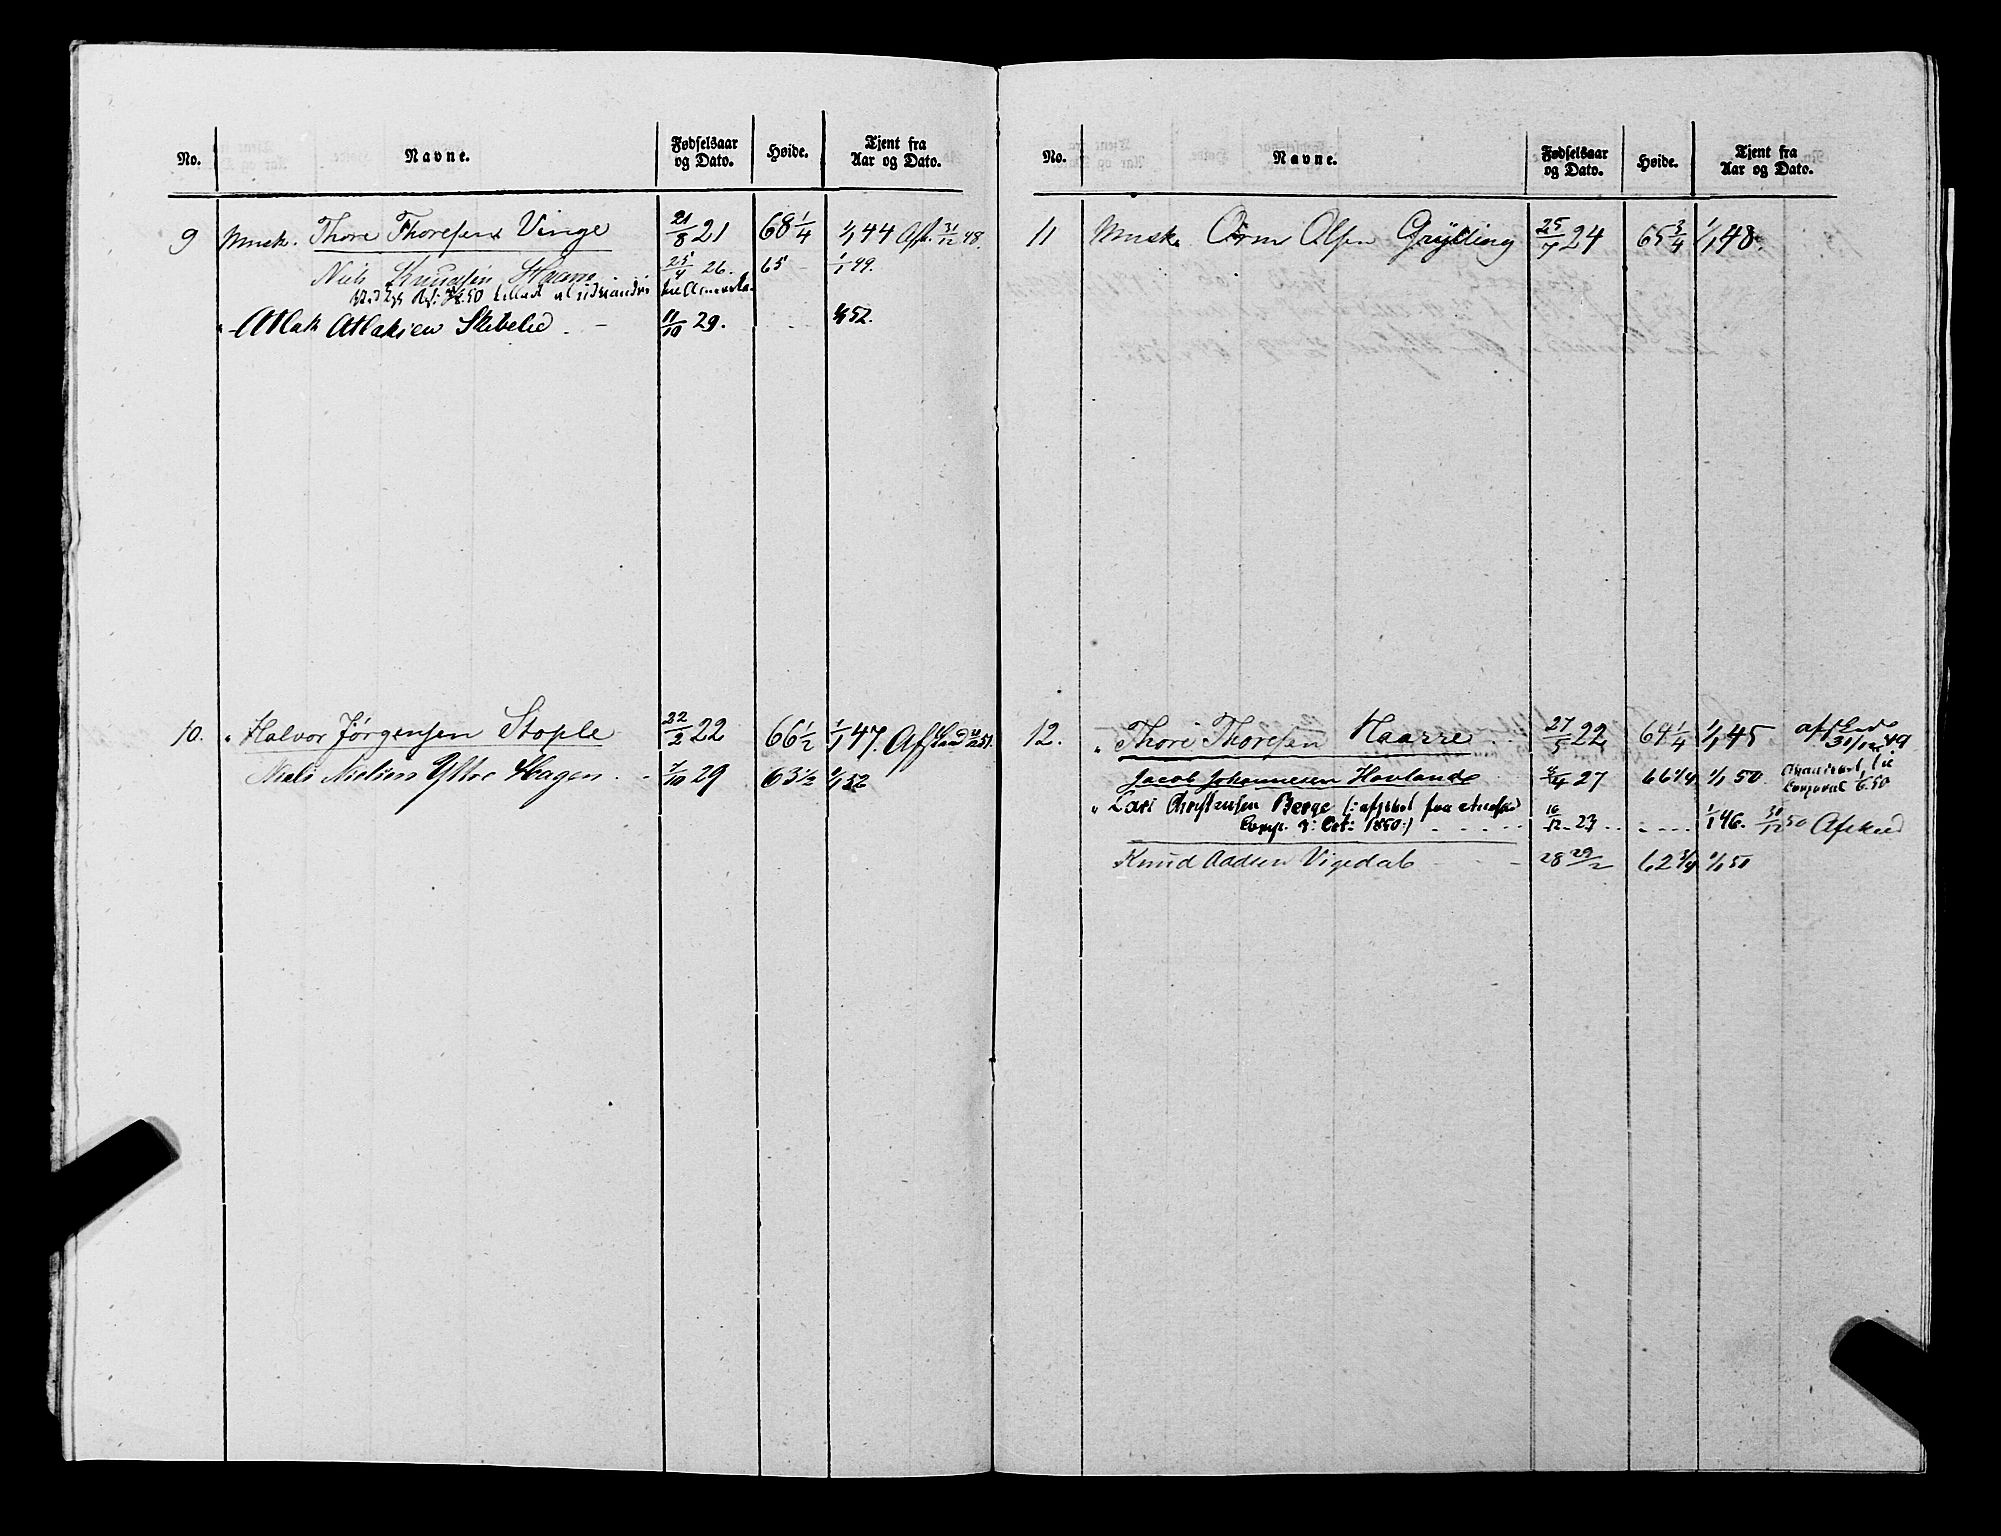 No. Navne. Fødselsaar og Dato. Høide. Tjent fra Aar og Dato.
9 Musk. Thore Thoresen Vinge 21/8 21 68 1/4 1/1 44 Afsk. 31/12 48.
Niels Knudsen Haarre 25/4 26. 65 1/1 49.
50 til Amerika
" Atlak Atlaksen Skibelid. - 11/10 29. 1/1 52.
10. " Halvor Jørgensen Stople 22/2 22 66 1/2 1/1 47. Afskeed 51.
Niels Nielsen Ytre Hagen. - 7/10 29 63 1/2 1/1 52
No. Navne. Fødselsaar og Dato. Høide. Tjent fra Aar og Dato.
11 Musk. Orm Olsen Grytting 25/7 24 65 3/4 1/1 48.
12. " Thore Thoresen Haarre 27/5 22 64 1/4 1/1 45 afskeed 31/12 49
Jacob Johannesen Hovland 27 66 1/4 1/1 50 Avanceret til Corporal 50
" Lars Christensen Berge (: afgivet fra
Comp. Oct: 1850:) 16/12 23 1/1 46. 31/12 50 Afskeed
Knud Aadsen Vigedal 28 29/2 62 3/4 1/1 51